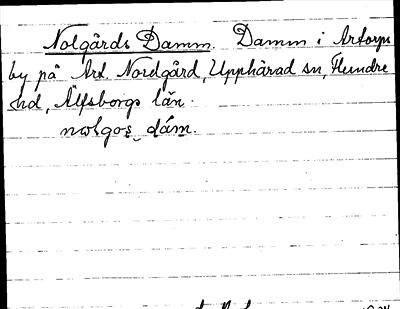 Nolgårds Damm. Damm i Artorps
by på Art. Nordgård, Upphärad sn, Flundre
hd, Älfsborgs län.
nωlgoş dám.